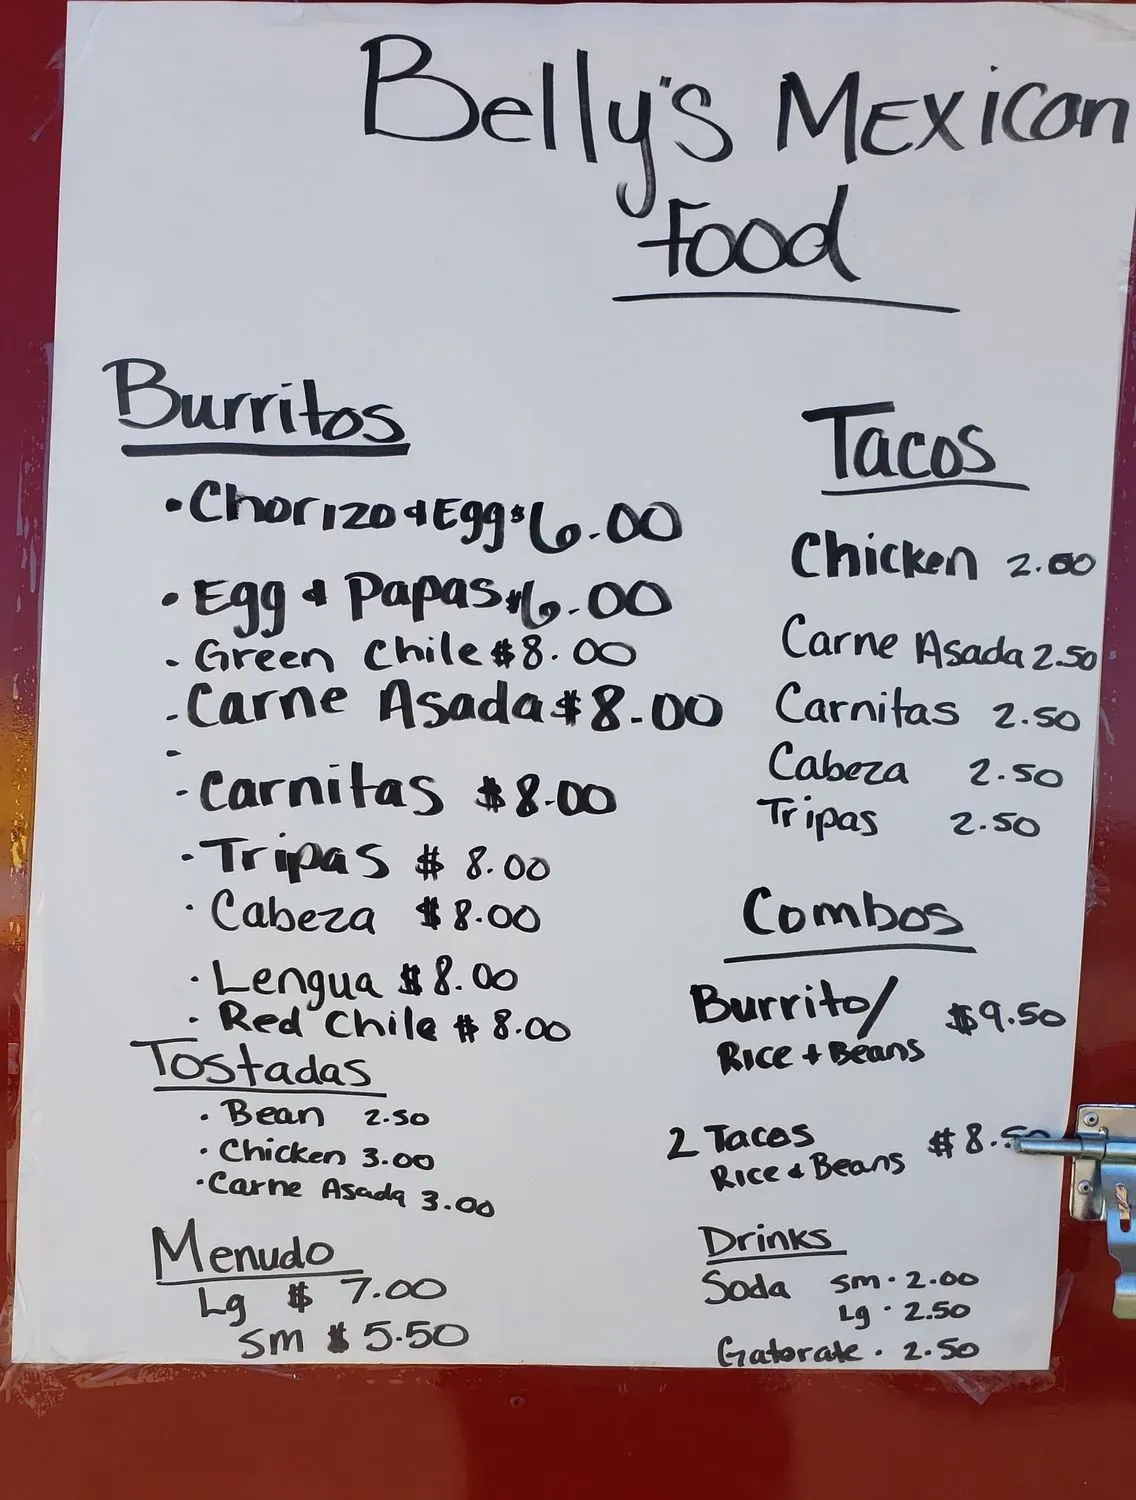 Belly's Mexican
Food
Burritos
• Chorizo & Egg $6.00
• Egg & Papas $6.00
- Green Chile $8.00
- Carne Asada $8.00
-
- Carnitas $8.00
- Tripas $ 8.00
· Cabeza $8.00
· Lengua $8.00
· Red Chile $8.00
Tostadas
· Bean 2.50
· Chicken 3.00
· Carne Asada 3.00
Menudo
Lg $ 7.00
Sm $ 5.50
Tacos
Chicken 2.00
Carne Asada 2.50
Carnitas 2.50
Cabeza 2.50
Tripas 2.50
Combos
Burrito/ $9.50
Rice + Beans
2 Tacos $8.50
Rice & Beans
Drinks
Soda Sm · 2.00
Lg · 2.50
Gatorate · 2.50